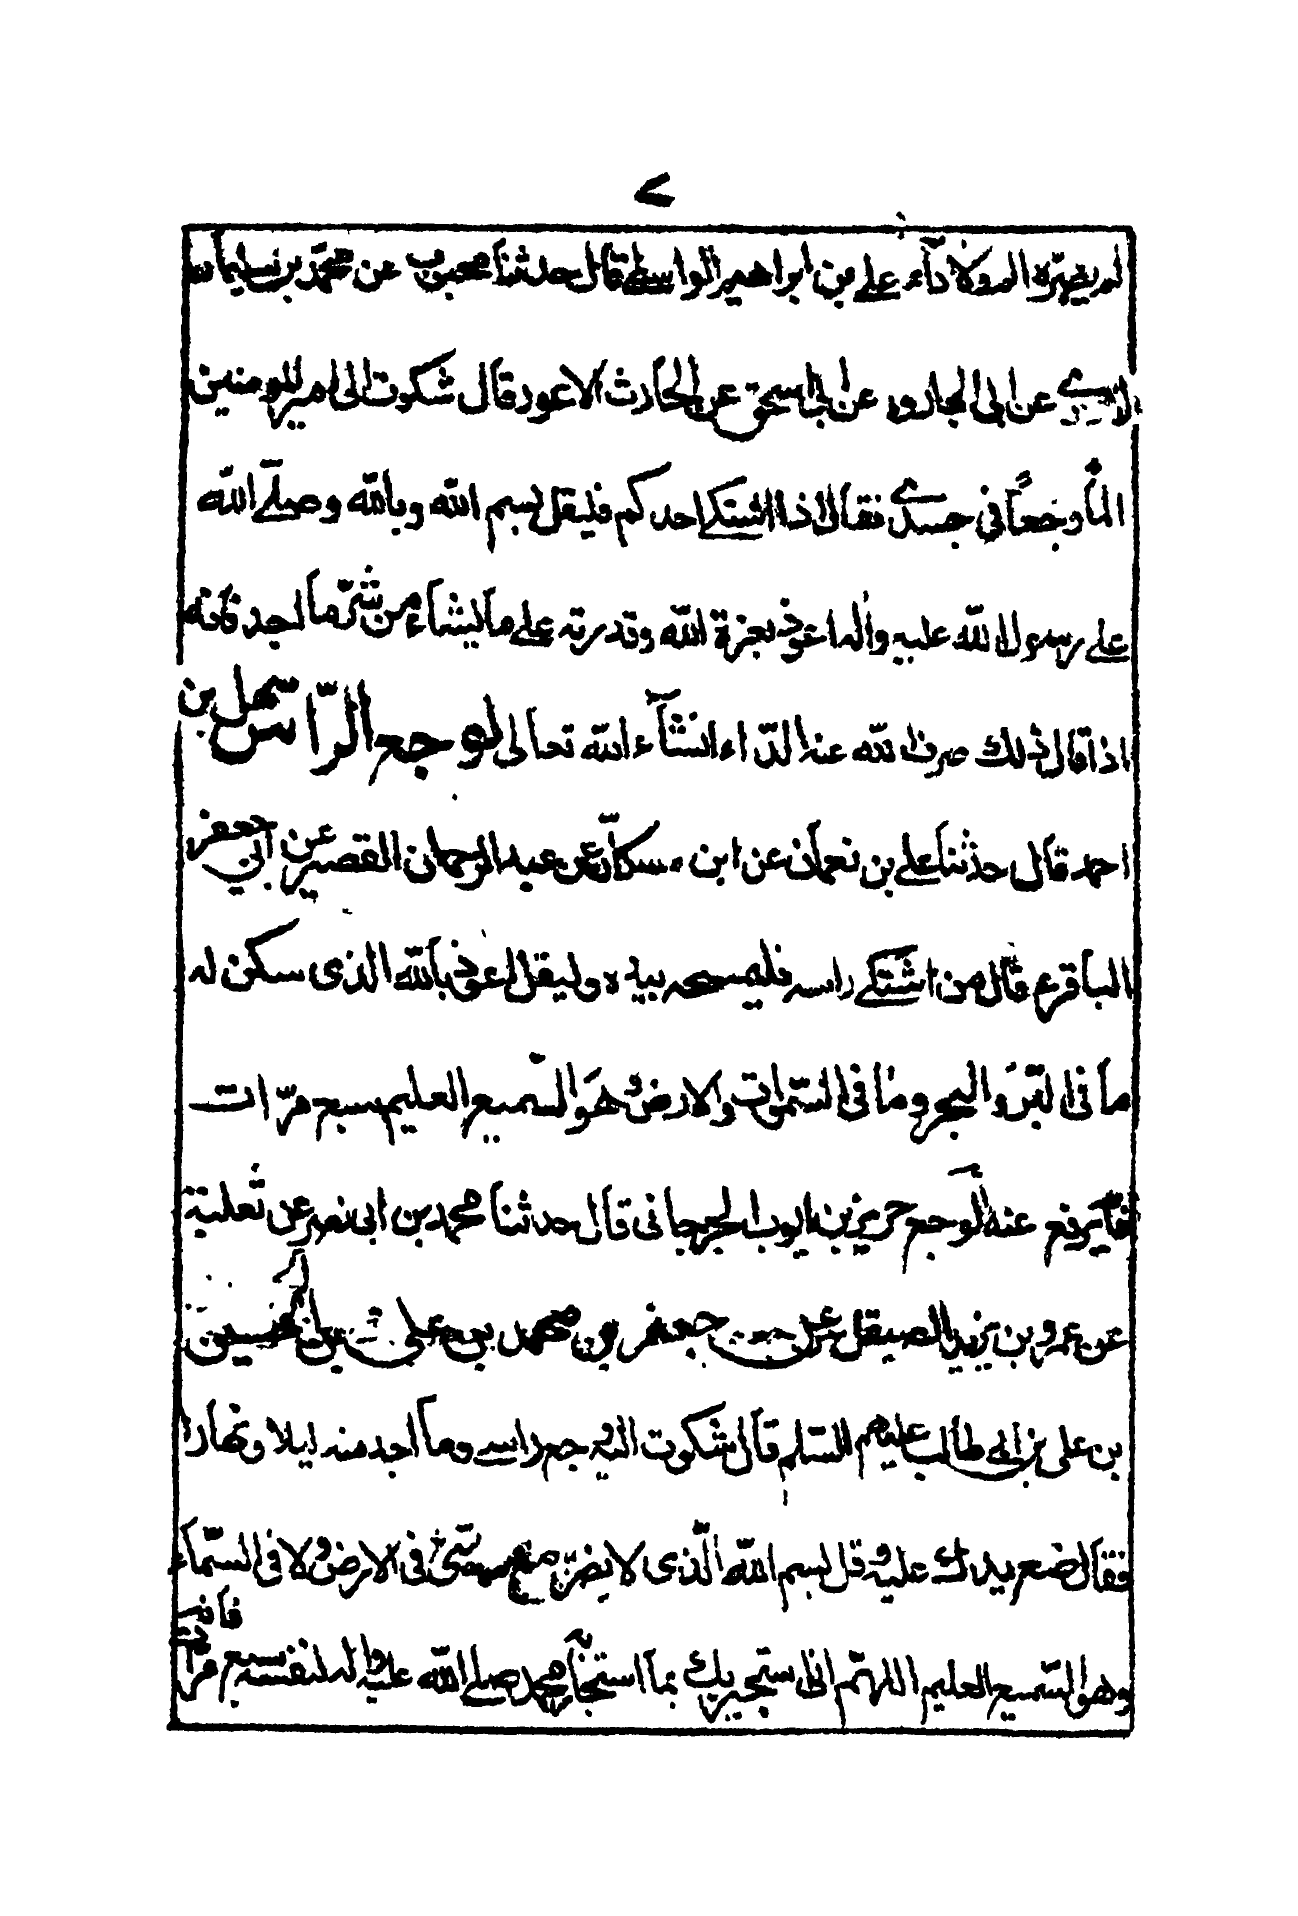 لم يضرّه الم ولا دآء علي بن ابراهيم الواسطي قال حدثنا محبوب عن محمّد بن سليمان
عن ابى الجارود عن ابى اسحق عن الحارث الاعور قال شكوت الى امير المومنين
المًا و جعًا فى جسدي فقال اذا اشتكى احدكم فليقل بسم الله وبالله وصلى الله
على رسول الله عليه واله اعوذ بعزة الله وقدرته على ما يشاء من شرّ ما اجد فانه
اذا قال ذلك صرف الله عنه الدّاء انشآء الله تعالى لوجع الرّاس سهل بن
احمد قال حدثنا على بن نعمان عن ابن مسكان عن عبد الرحمان القصير عن ابى جعفر
الباقر ع قال من اشتكى راسه فليمسحه بيده وليقل اعوذ بالله الذى سكن له
ما فى البّر والبحر وما فى السّموات والارض وهو السّميع العليم سبع مرّات
فانّه يرفع عنه الوجع حريز بن ايوب الجرجانى قال حدثنا محمد بن ابى نصر عن ثعلبة
عن عمرو بن يزيد الصيقل عن جعفر بن محمد بن على بن الحسين
بن على بن ابى طالب عليهم السّلم قال شكوت اليه وجع راسى وما اجد منه ليلا ونهارا
فقال ضع يدك عليه وقل بسم الله الّذى لا يضرّ مع اسمه شىء فى الارض ولا فى السّماء
وهو السّميع العليم اللهمّ انى استجير بك بما استجار به محمد صلى الله عليه واله لنفسه سبع مرّات فانه